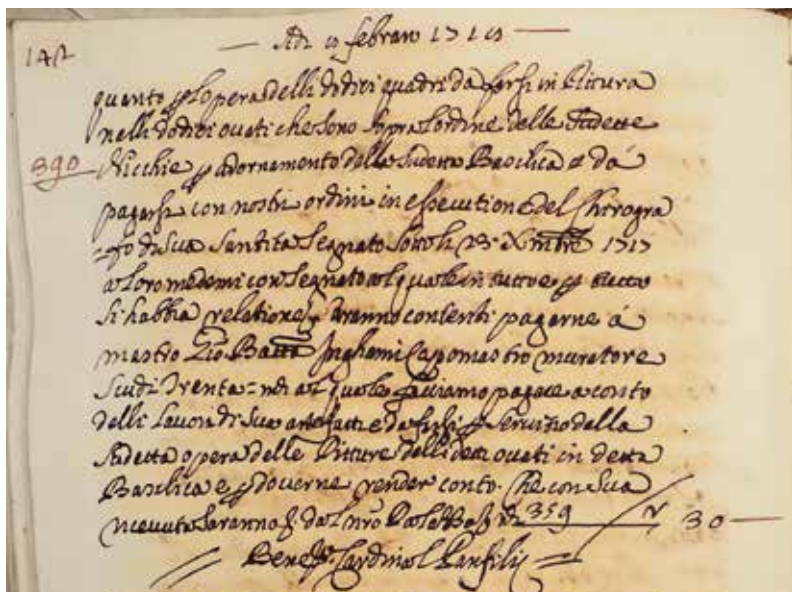 Adi 9 febraro 1719
142
quanto p l'opera delli dodici quadri da farsi in Pittura
nelli dodici ouati che sono sopra l'ordine delle sudette
390
Nicchie p adornamento della sudetta Basilica e da
pagarsi con nostri ordini in essecutione del Chirogra
=fo di Sua Santità segnato sotto li Xmbre 1717
a loro medemi consegnato al quale in tutto e p tutto
si habbia relatione, contenti pagarne á
mastro Gio Batta Inghami Capomastro muratore
Scudi Trenta = m.ta quale facciamo pagare a conto
delli lauori di sua arte fatti e da farsi p seruizio della
sudetta opera delle Pitture delli detti ouati in detta
Basilica e p douerne render conto. Che con sua
riceuuta saranno 359 30
Bened. Cardinal Panfilij